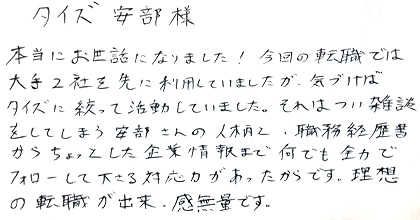 タイズ 安部様
本当にお世話になりました！今回の転職では
大手2社を先に利用していましたが、気づけば
タイズに絞って活動していました。それはつい雑談
をしてしまう安部さんの人柄と、職務経歴書
からちょっとした企業情報まで何でも全力で
フォローして下さる対応力があったからです。理想
の転職が出来、感無量です。